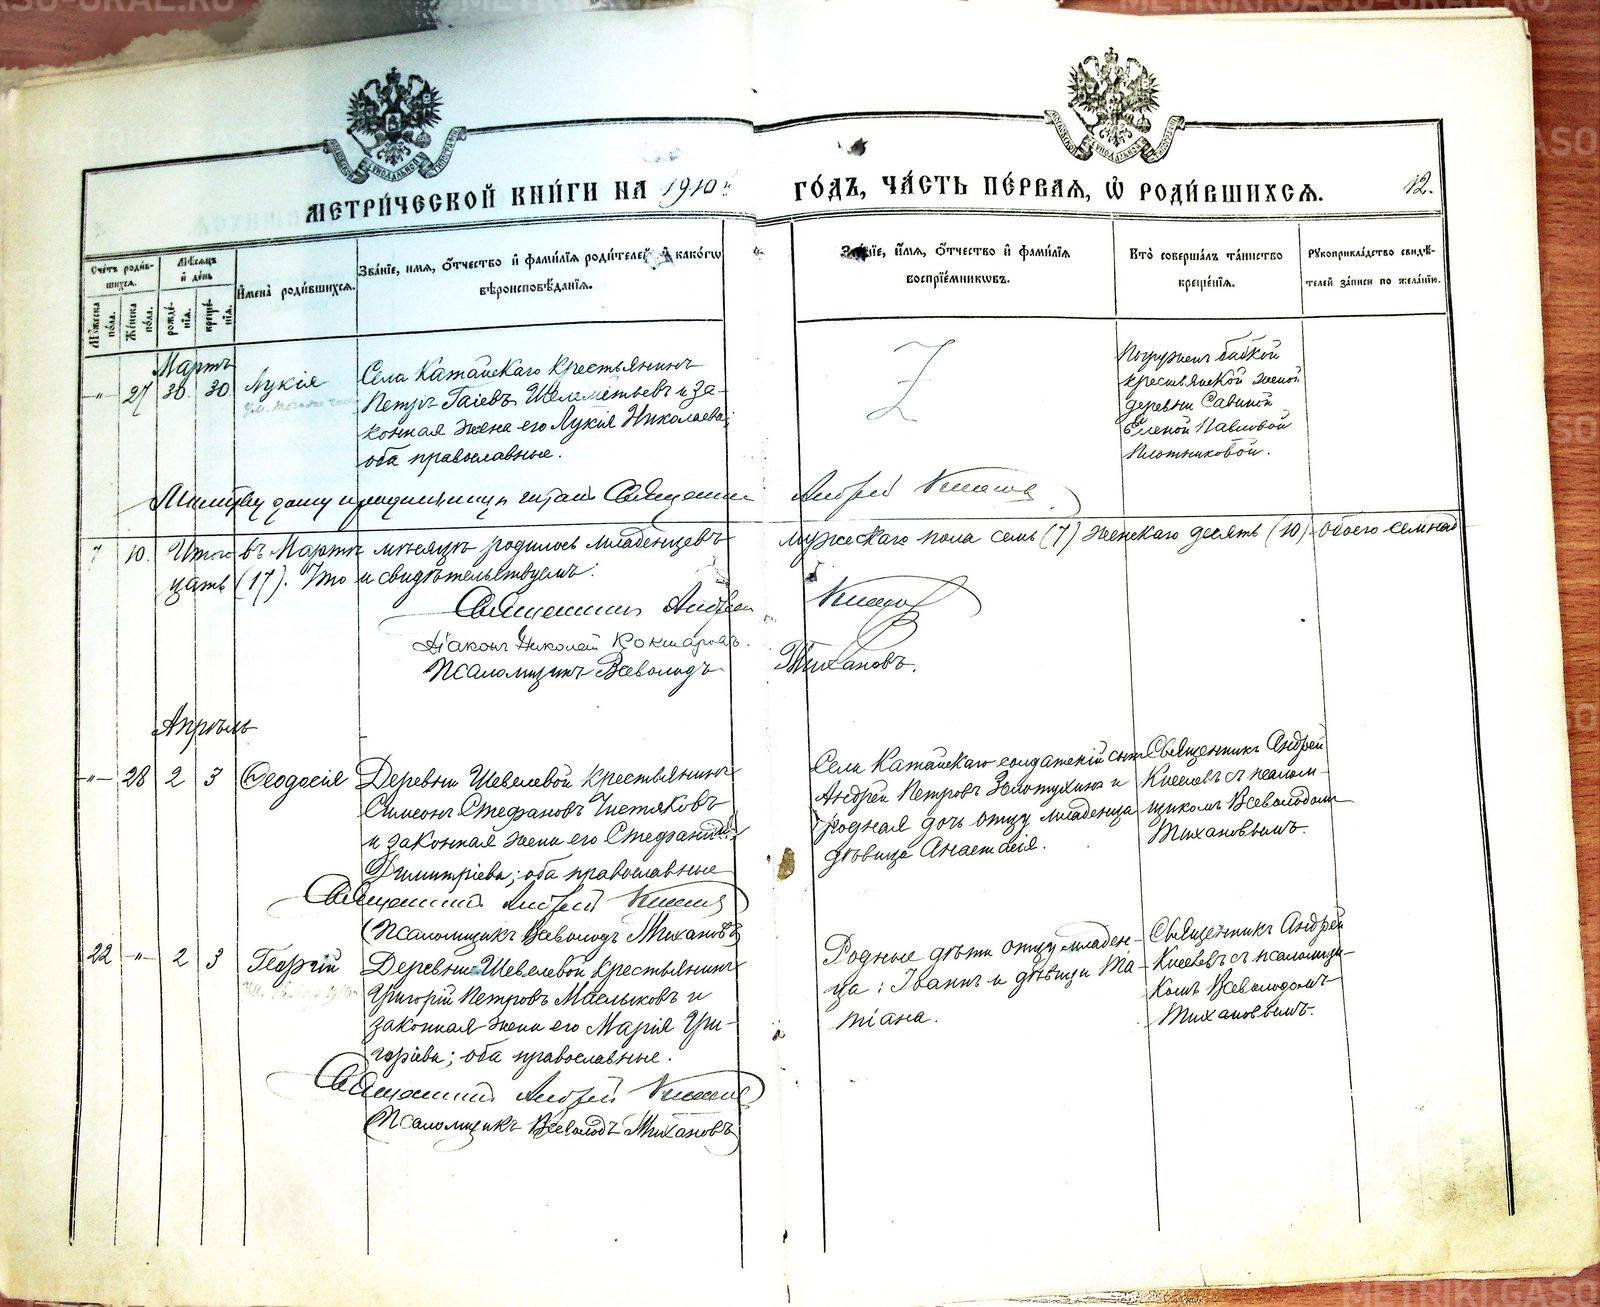 МЕТРИЧЕСКОЙ КНИГИ НА 1910й ГОДЪ, ЧАСТЬ ПЕРВАЯ, Ѿ РОДИВШИХСЯ. 12.
Счетъ родив-
шихся.
Мужеска пола.
Женска пола.
Мѣсяцъ
и день
рожде-
нія.
креще-
нія.
Имена родившихся.
Званіе, имя, отчество и фамилія родителей, и какого
вѣроисповѣданія.
Званіе, имя, отчество и фамилія
воспріемниковъ.
Кто совершалъ таинство
крещенія.
Рукоприкладство свидѣ-
телей записи по желанію.
Мартъ
-„- 27 30 30 Лукія
Села Катайскаго крестьянинъ
Петръ Гаіевъ Шелеметьевъ и за-
конная жена его Лукія Николаева;
оба православные.
Погружен бабкой
крестьянской женой
деревни Савиной
Еленой Павловой
Плотниковой.
Молитву дому и родильницѣ читалъ Священникъ Андрей
7 10. Итого въ Мартѣ мѣсяцѣ родилось младенцевъ мужескаго пола семь (7) женскаго десять (10) обоего семнад
цать (17). Что и свидѣтельствуемъ:
Священникъ Андрей
Діаконъ Николай Кокшаровъ.
Псаломщикъ Всеволодъ Тихановъ.
Апрѣль
-„- 28 2 3 Ѳеодосія
Деревни Шевелевой крестьянинъ
Симеонъ Стефановъ Чистяковъ
и законная жена его Стефанида
Димитріева; оба православные
Села Катайскаго солдатскій сынъ
Андрей Петровъ Золотухинъ и
родная дочь отцу младенца
дѣвица Анастасія.
Священникъ Андрей
Киселевъ съ псалом-
щикомъ Всеволодомъ
Тихановымъ.
Священникъ Андрей
Псаломщикъ Всеволодъ Тихановъ
22 -„- 2 3 Георгій
Деревни Шевелевой крестьянинъ
Григорій Петровъ Маслыковъ и
законная жена его Марія Гри-
горіева; оба православные.
Родные дѣти отцу младен-
ца: Іваннъ и дѣвица Та-
тіана.
Священникъ Андрей
Киселевъ съ псаломщи-
комъ Всеволодомъ
Тихановымъ.
Священникъ Андрей
Псаломщикъ Всеволодъ Тихановъ
METRIKI.GASO-URAL.RU